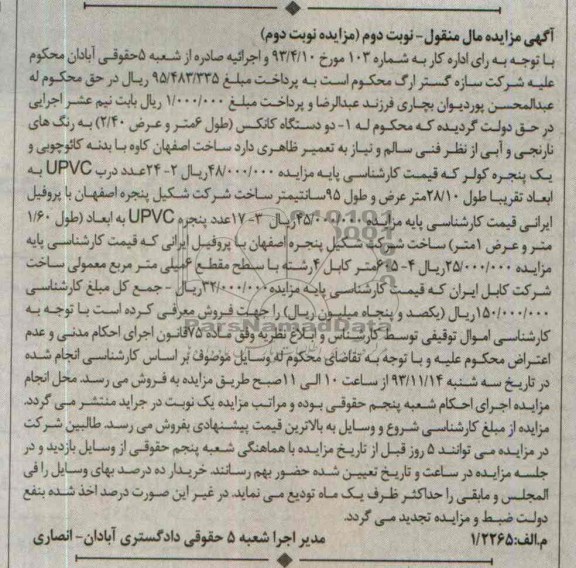 آگهی مزایده مال منقول- نوبت دوم (مزایده نوبت دوم)
با توجه به رای اداره کار به شماره ۱۰۳ مورخ ۹۳/۴/۱۰ و اجرائیه صادره از شعبه ۵حقوقی آبادان محکوم
علیه شرکت سازه گستر ارگ محکوم است به پرداخت مبلغ ۹۵/۴۸۳/۳۳۵ ریال در حق محکوم له
عبدالمحسن پوردیوان بچاری فرزند عبدالرضا و پرداخت مبلغ ۱/۰۰۰/۰۰۰ ریال بابت نیم عشر اجرایی
در حق دولت گردیده که محکوم له ۱- دو دستگاه کانکس (طول ۶متر و عرض ۲/۴۰) به رنگ های
نارنجی و آبی از نظر فنی سالم و نیاز به تعمیر ظاهری دارد ساخت اصفهان کاوه با بدنه کائوچویی و
یک پنجره کولر که قیمت کارشناسی پایه مزایده ۴۸/۰۰۰/۰۰۰ریال ۲- ۲۴عدد درب UPVC به
ابعاد تقریبا طول ۲۸/۱۰متر عرض و طول ۹۵سانتیمتر ساخت شرکت شکیل پنجره اصفهان با پروفیل
ایرانی قیمت کارشناسی پایه مزایده ۴۵/۰۰۰/۰۰۰ریال ۳- ۱۷عدد پنجره UPVC به ابعاد (طول ۱/۶۰
متر و عرض ۱متر) ساخت شرکت شکیل پنجره اصفهان با پروفیل ایرانی که قیمت کارشناسی پایه
مزایده ۲۵/۰۰۰/۰۰۰ریال ۴- ۶۰۵متر کابل ۴رشته با سطح مقطع ۶میلی متر مربع معمولی ساخت
شرکت کابل ایران که قیمت کارشناسی پایه مزایده۳۲/۰۰۰/۰۰۰ریال - جمع کل مبلغ کارشناسی
۱۵۰/۰۰۰/۰۰۰ریال (یکصد و پنجاه میلیون ریال) را جهت فروش معرفی کرده است با توجه به
کارشناسی اموال توقیفی توسط کارشناس و ابلاغ نظریه وفق ماده ۷۵قانون اجرای احکام مدنی و عدم
اعتراض محکوم علیه و با توجه به تقاضای محکوم له وسایل موصوف بر اساس کارشناسی انجام شده
در تاریخ سه شنبه ۹۳/۱۱/۱۴ از ساعت ۱۰ الی ۱۱صبح طریق مزایده به فروش می رسد. محل انجام
مزایده اجرای احکام شعبه پنجم حقوقی بوده و مراتب مزایده یک نوبت در جراید منتشر می گردد.
مزایده از مبلغ کارشناسی شروع و وسایل به بالاترین قیمت پیشنهادی بفروش می رسد. طالبین شرکت
در مزایده می توانند ۵ روز قبل از تاریخ مزایده با هماهنگی شعبه پنجم حقوقی از وسایل بازدید و در
جلسه مزایده در ساعت و تاریخ تعیین شده حضور بهم رسانند. خریدار ده درصد بهای وسایل را فی
المجلس و مابقی را حداکثر ظرف یک ماه تودیع می نماید. در غیر این صورت درصد اخذ شده بنفع
دولت ضبط و مزایده تجدید می گردد.
م.الف:۱/۲۲۶۵ مدیر اجرا شعبه ۵ حقوقی دادگستری آبادان- انصاری
ParsNamadData